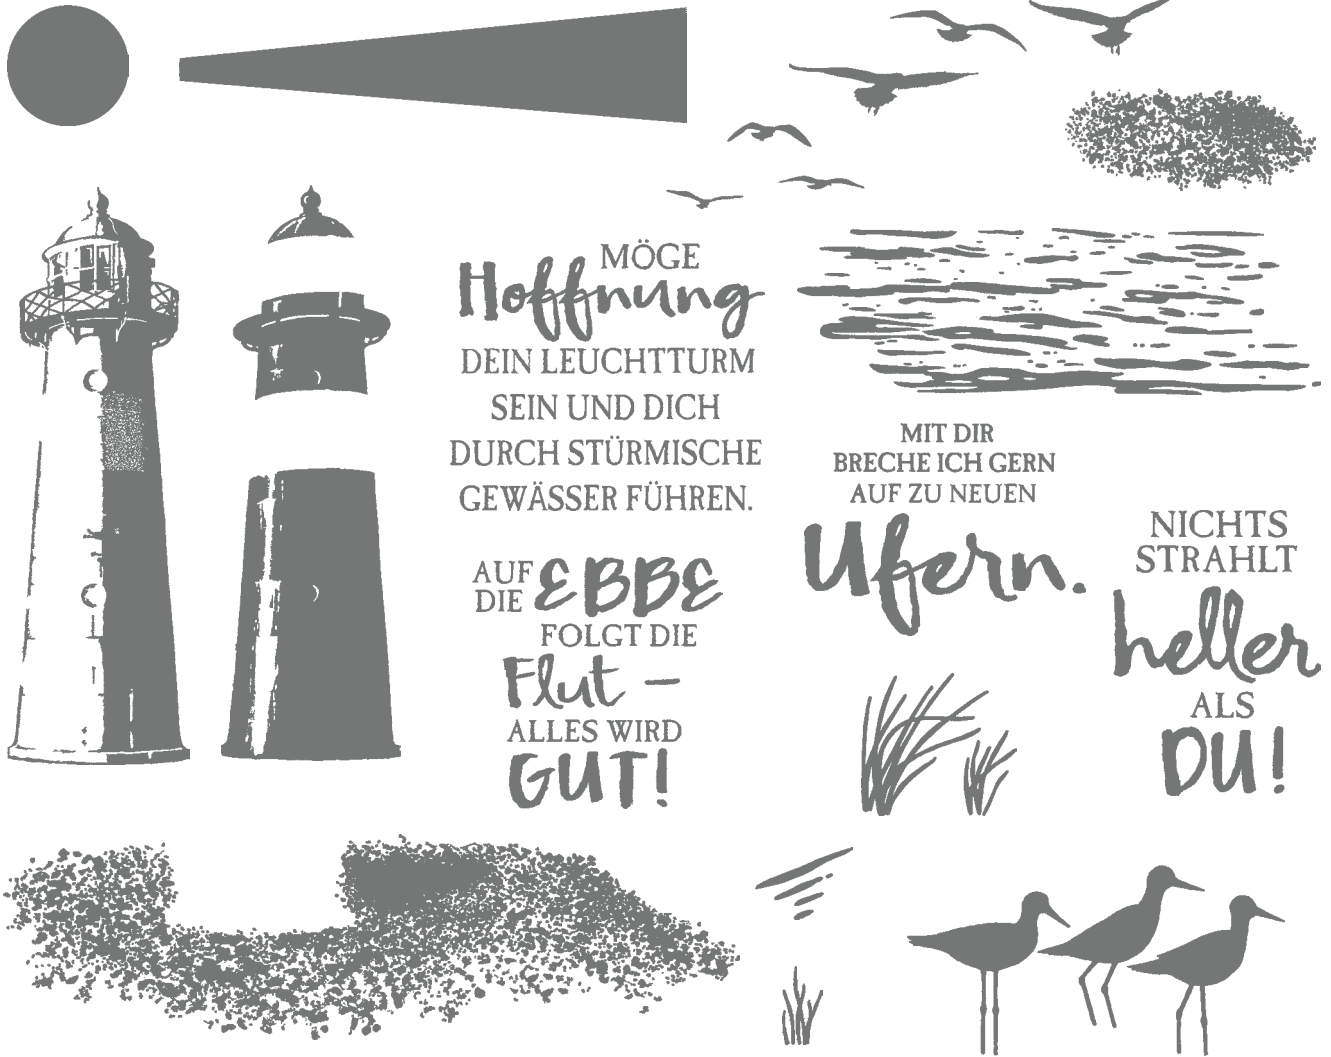 MÖGE
Hoffnung
DEIN LEUCHTTURM
SEIN UND DICH
DURCH STÜRMISCHE
GEWÄSSER FÜHREN.
AUF
DIE EBBE
FOLGT DIE
Flut –
ALLES WIRD
GUT!
MIT DIR
BRECHE ICH GERN
AUF ZU NEUEN
Ufern.
NICHTS
STRAHLT
heller
ALS
DU!